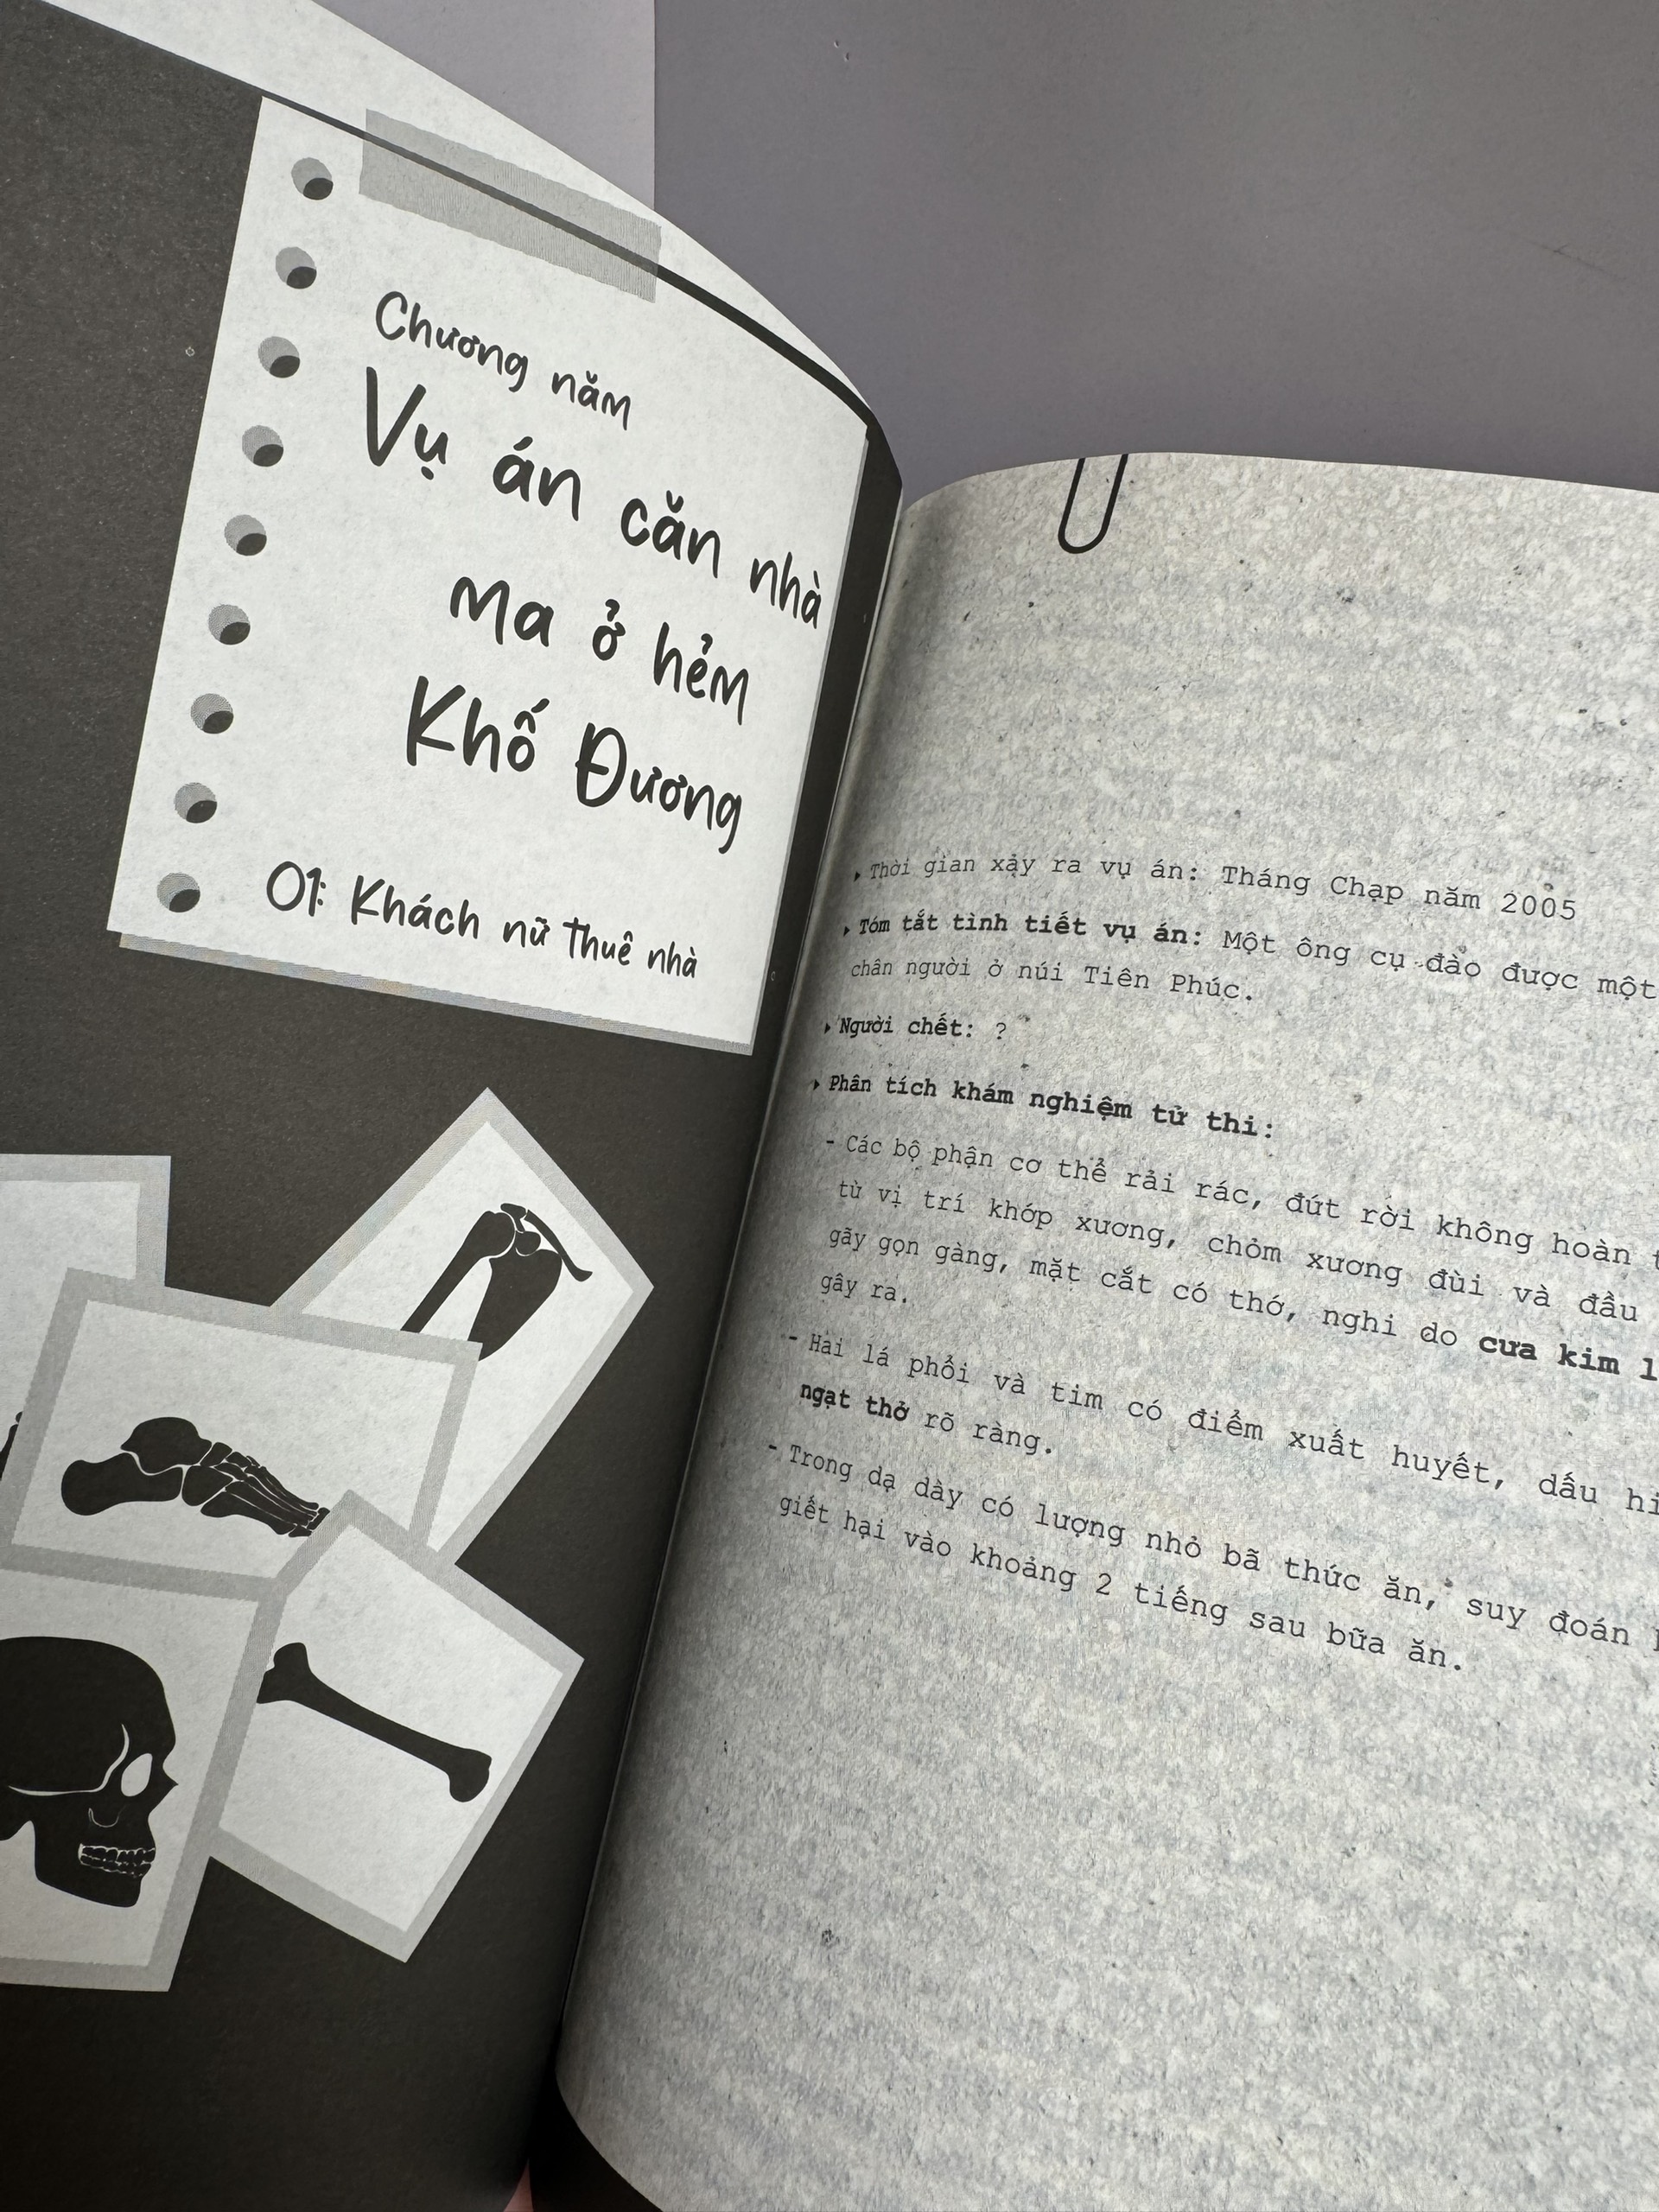 Chương năm
Vụ án căn nhà
ma ở hẻm
Khố Đương
01: Khách nữ thuê nhà
Thời gian xảy ra vụ án: Tháng Chạp năm 2005
Tóm tắt tình tiết vụ án: Một ông cụ đào được một
chân người ở núi Tiên Phúc.
Người chết: ?
Phân tích khám nghiệm tử thi:
- Các bộ phận cơ thể rải rác, đứt rời không hoàn
từ vị trí khớp xương, chỏm xương đùi và đầu
gãy gọn gàng, mặt cắt có thớ, nghi do cưa kim
gây ra.
- Hai lá phổi và tim có điểm xuất huyết, dấu
ngạt thở rõ ràng.
- Trong dạ dày có lượng nhỏ bã thức ăn, suy đoán
giết hại vào khoảng 2 tiếng sau bữa ăn.